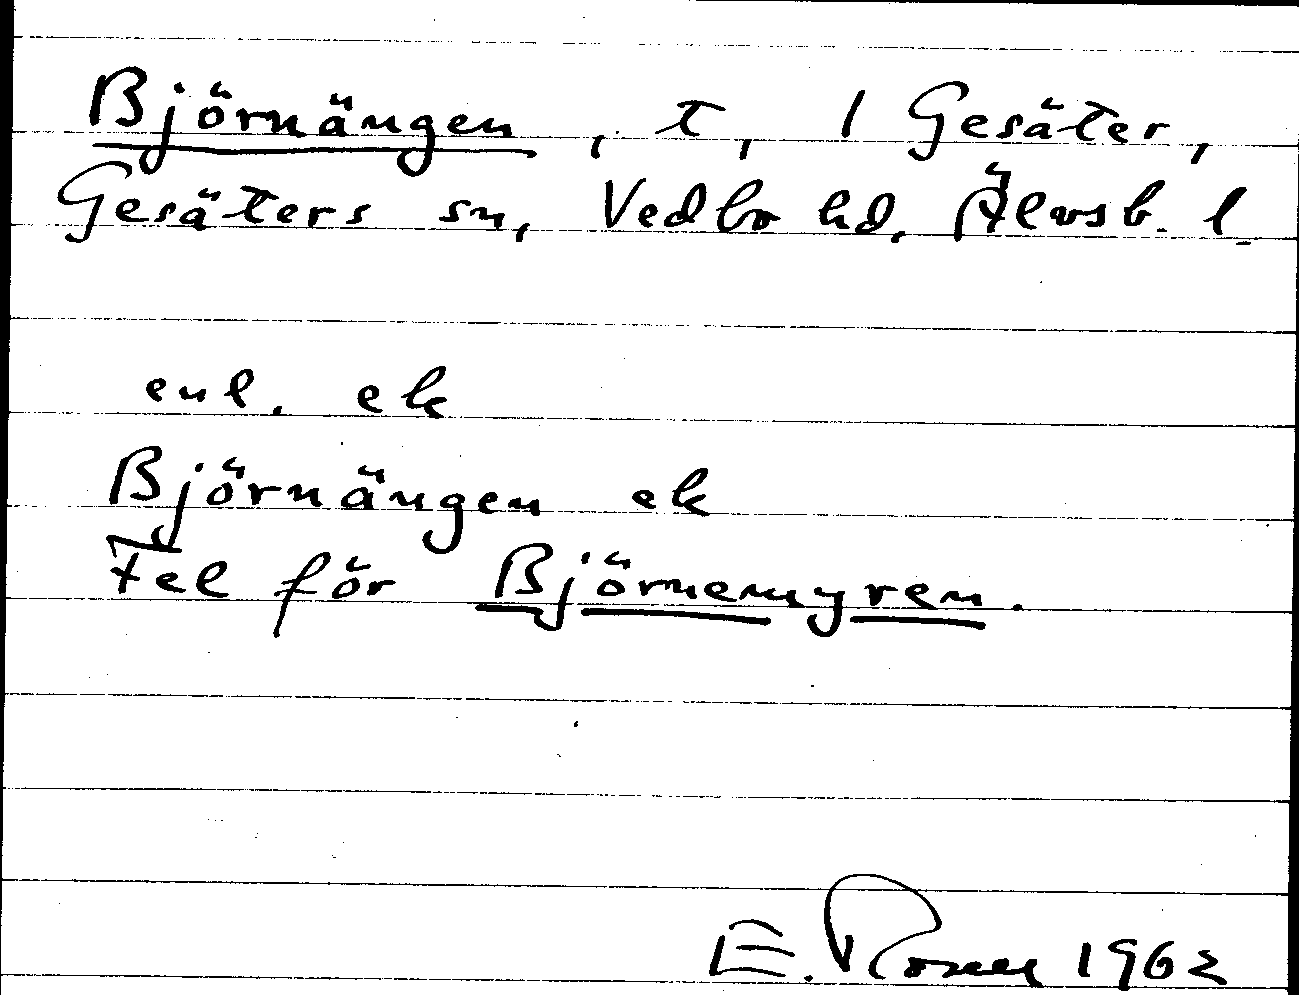 Björnängen, t, 1 Gesäter,
Gesäters sn, Vedbo hd, Älvsb. l.
enl. ek
Björnängen ek
Fel för Björnemyren.
E. 1962